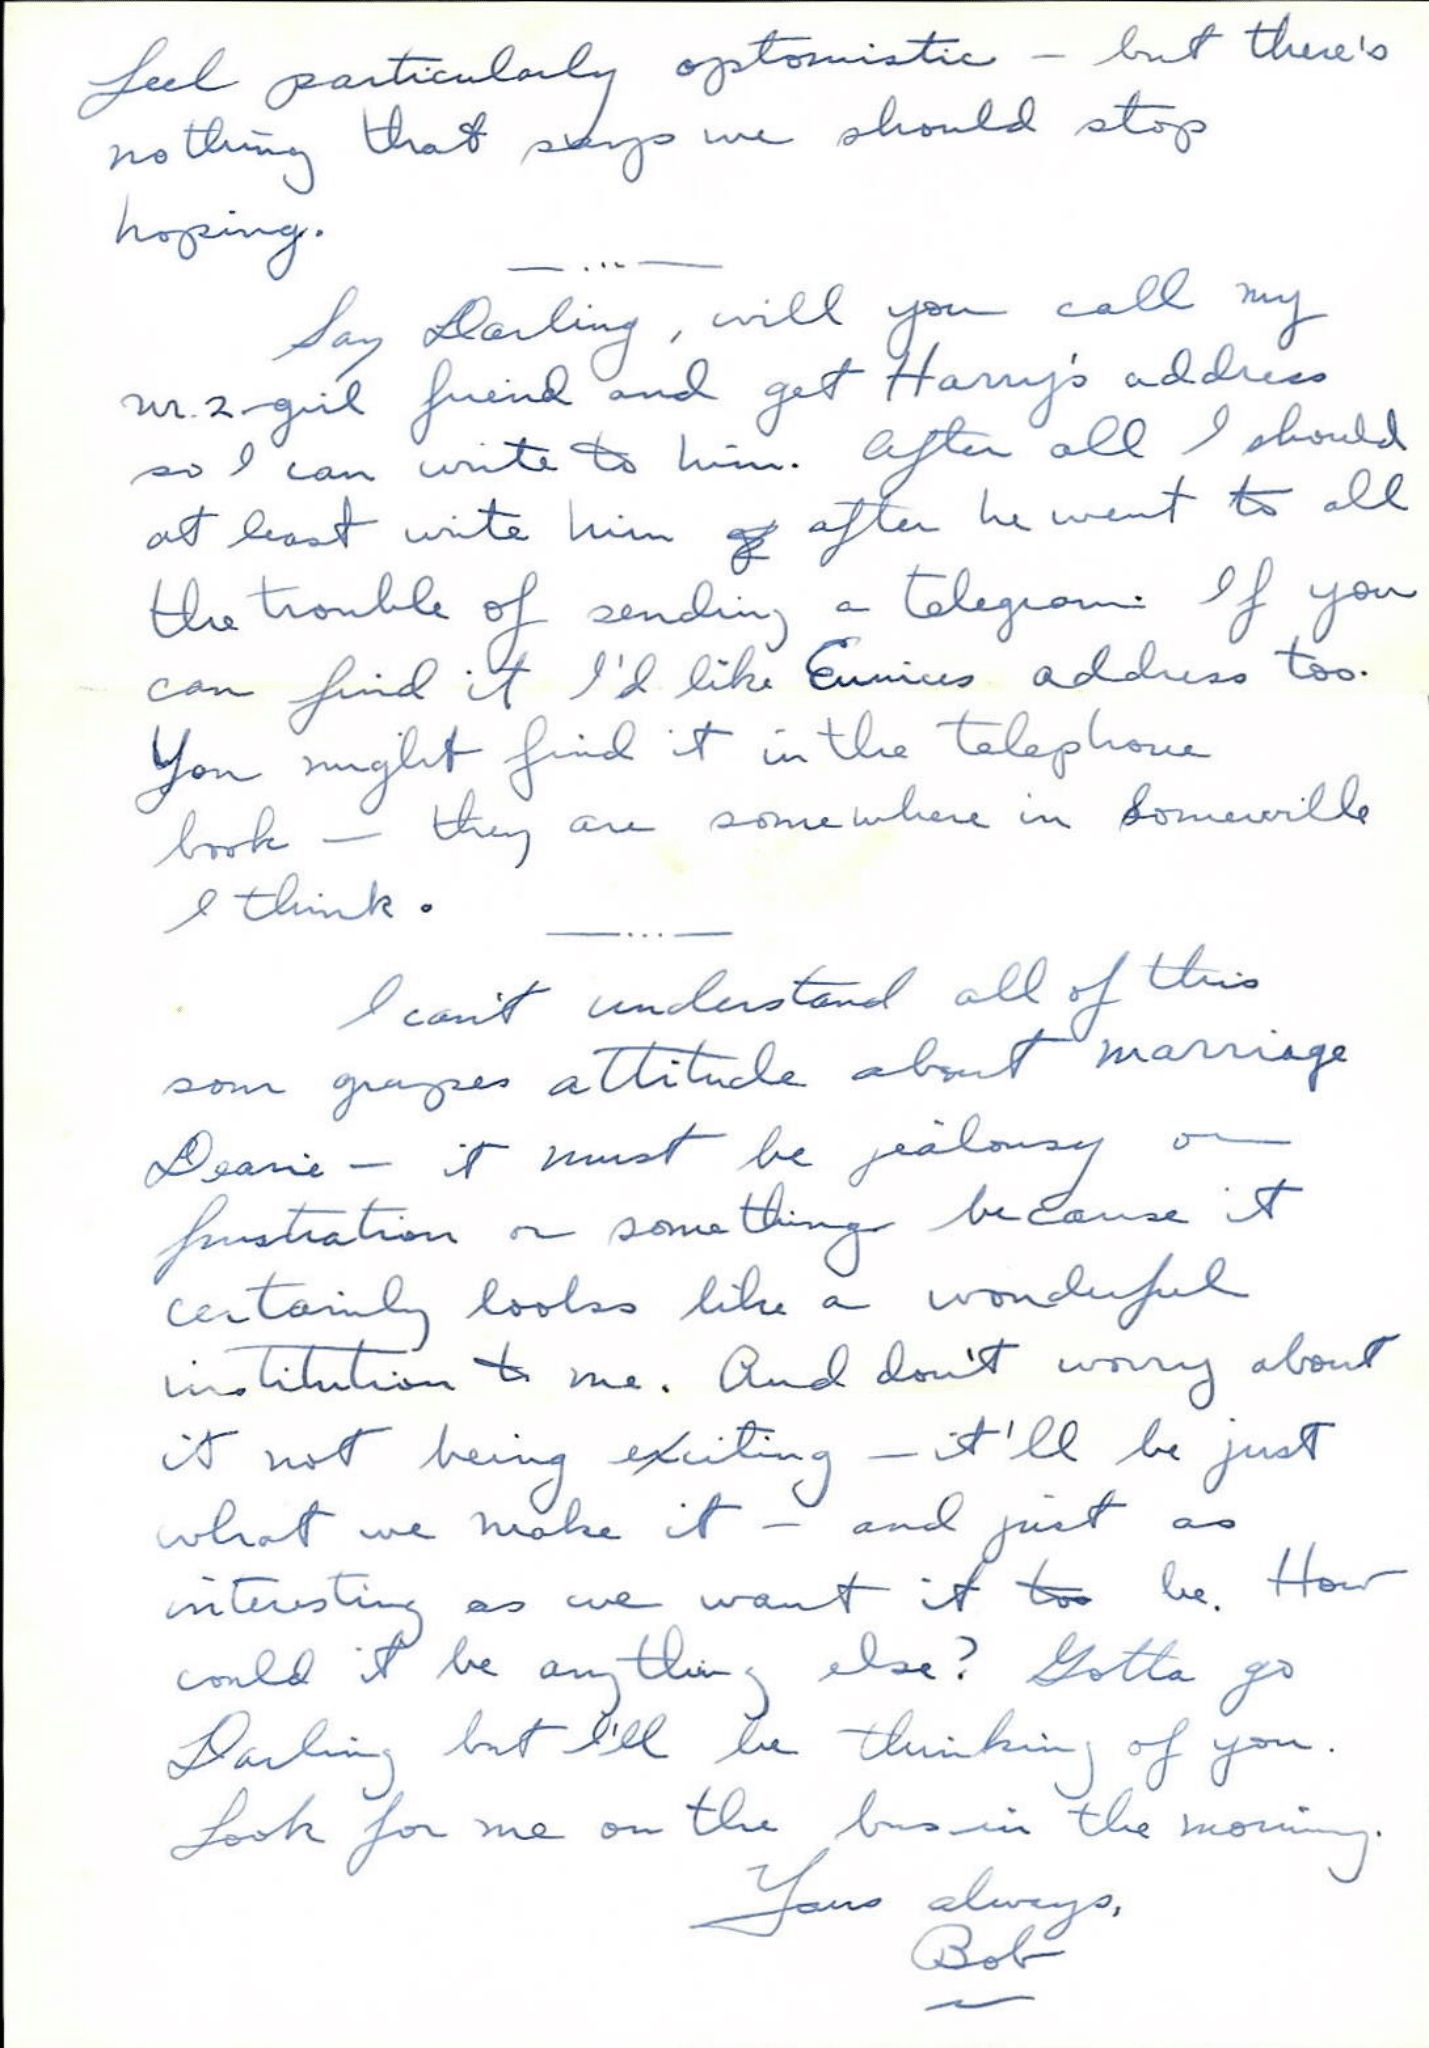 feel particularly optomistic - but there's
nothing that says we should stop
hoping.
— ... —
Say Darling, will you call my
nr. 2-girl friend and get Harry's address
so I can write to him. After all I should
at least write him after he went to all
the trouble of sending a telegram. If you
can find it I'd like Eunices address too.
You might find it in the telephone
book - they are somewhere in Somerville
I think.
— ... —
I can't understand all of this
sour grapes attitude about marriage
Dearie - it must be jealousy or
frustration or something because it
certainly looks like a wonderful
institution to me. And don't worry about
it not being exciting - it'll be just
what we make it - and just as
interesting as we want it too be. How
could it be anything else? Gotta go
Darling but I'll be thinking of you.
Look for me on the bus in the morning.
Yours always,
Bob